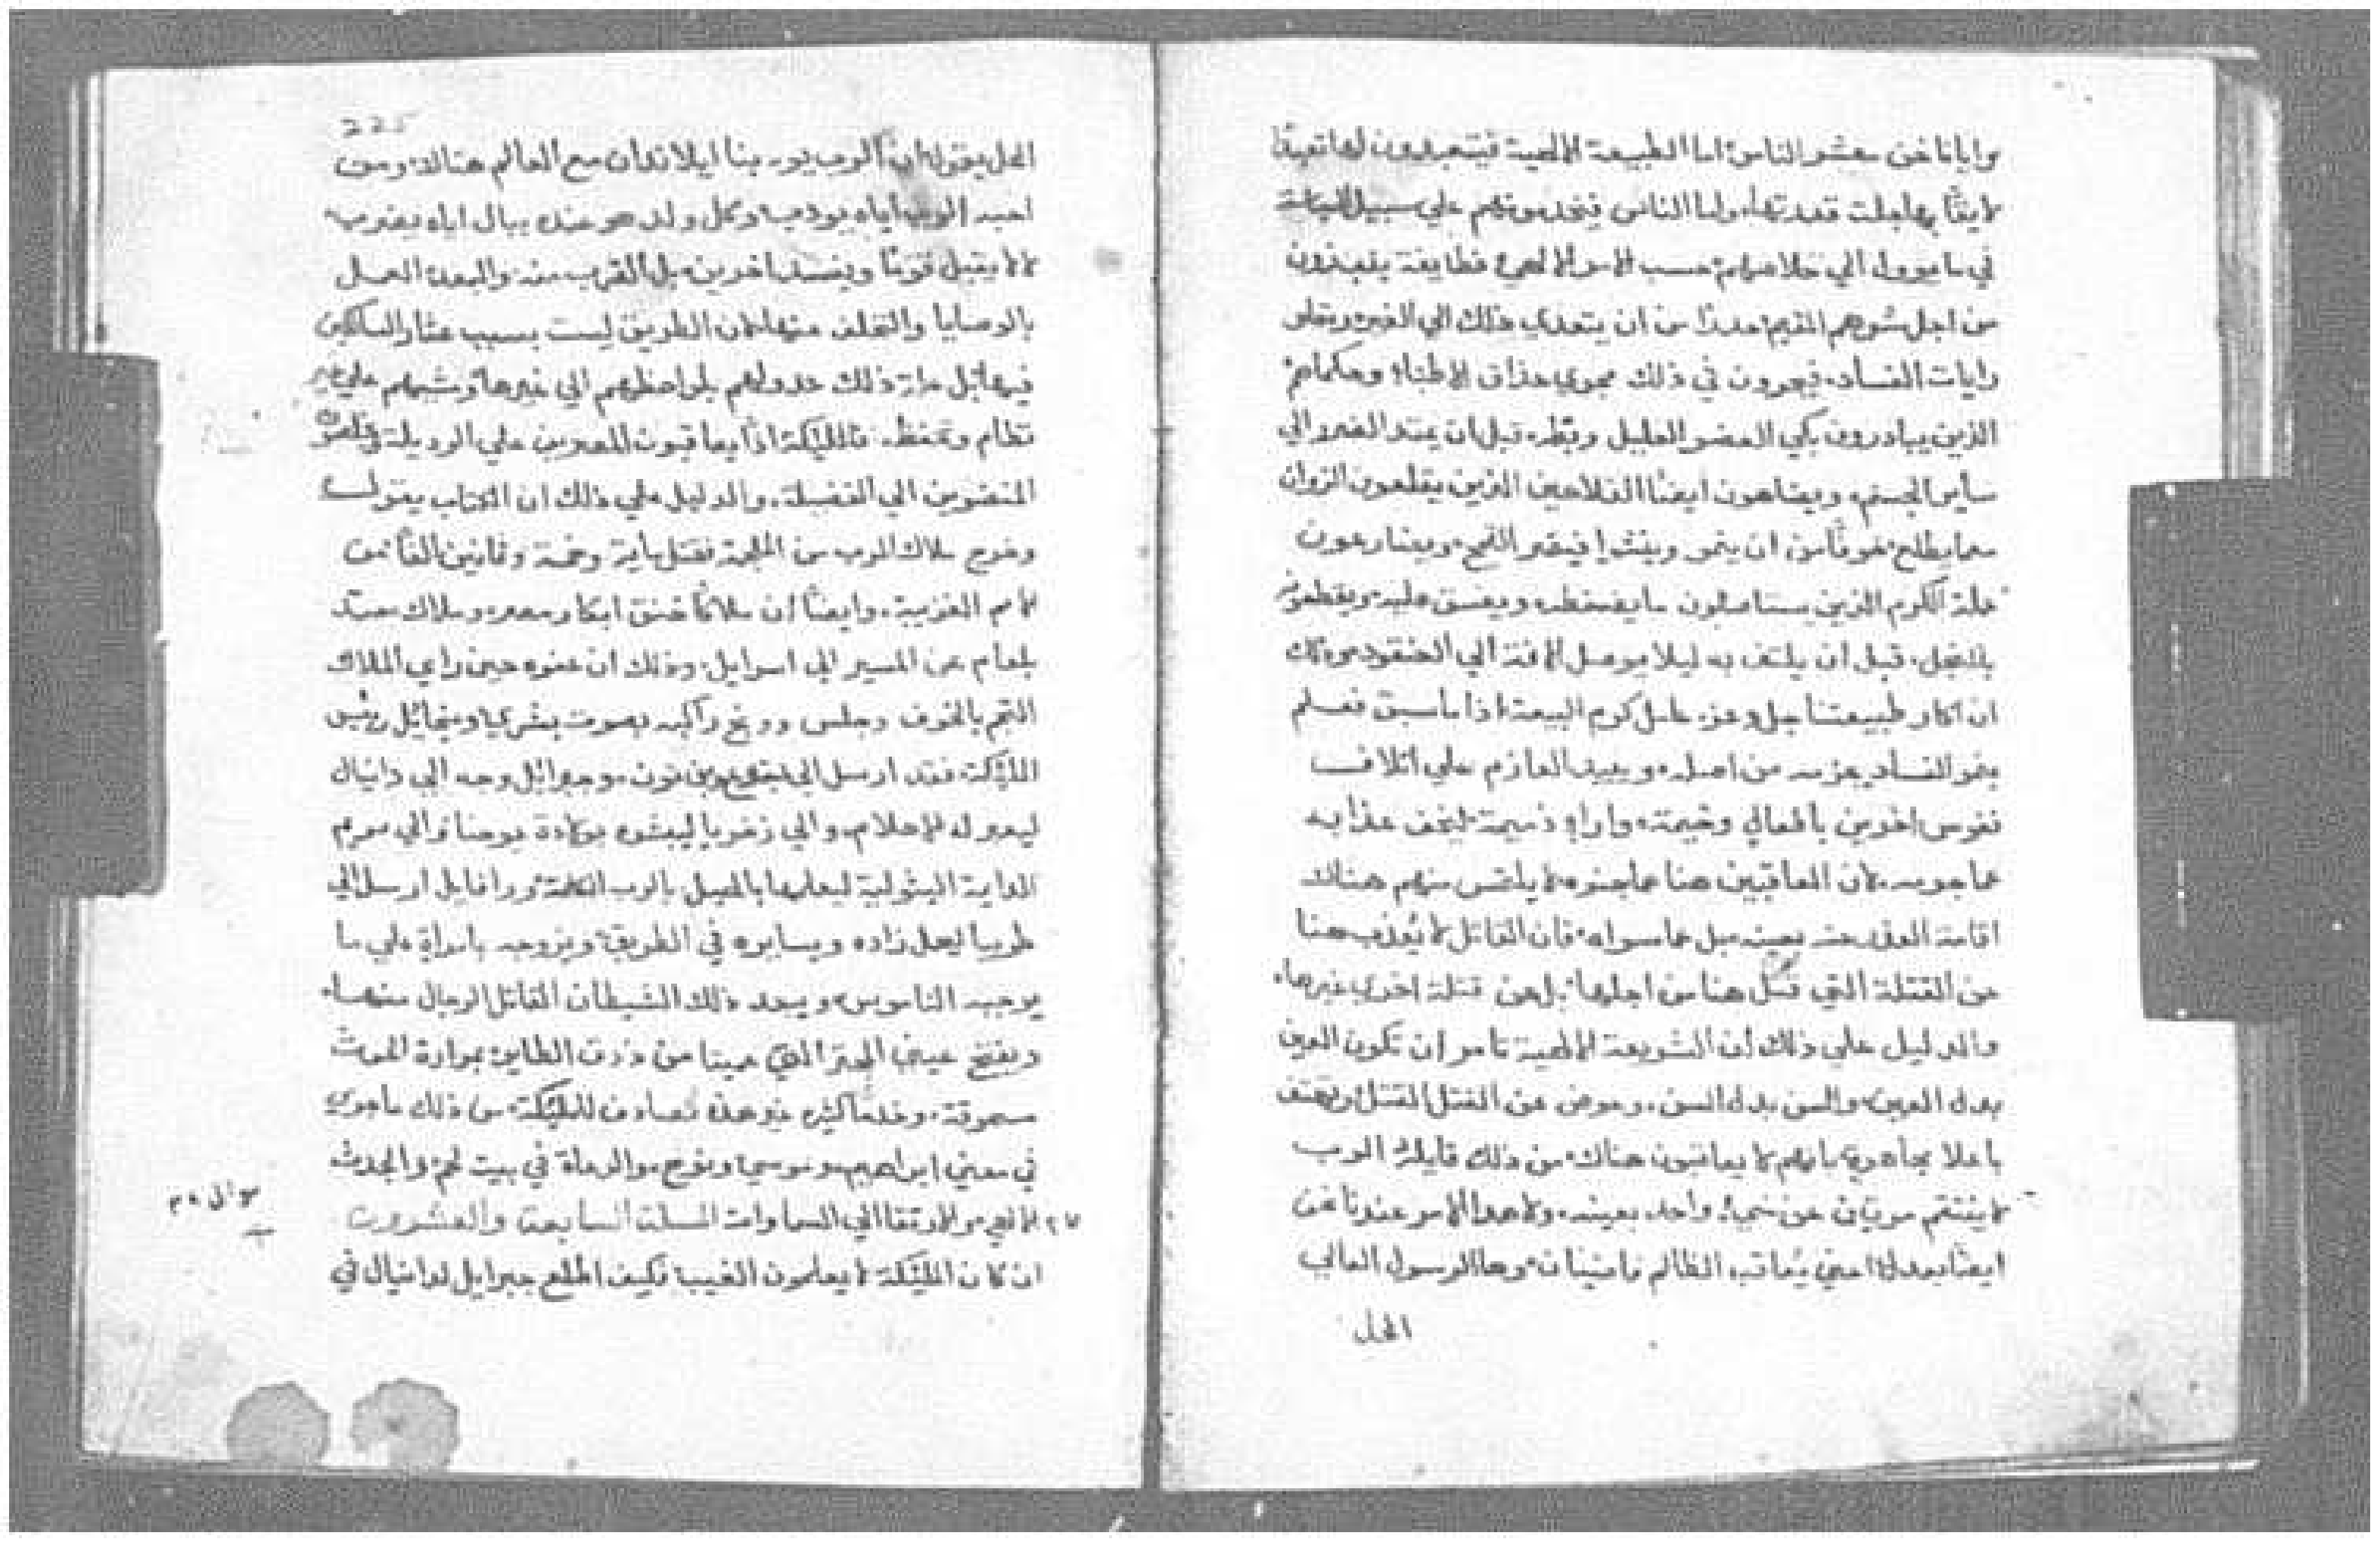 وايانا نحن معشر الناس اما الطبيعة الالهية فيتعبدون لها تعبدًا
لايقًا بها جلت قدرتها واما الناس فيخدمونهم علي سبيل
في ما يوول الي خلاصهم حسب الامر الالهي فطايفة ينذرون
من اجل شرهم المقيم حذرًا من ان يتعدي ذلك الي الغير
رايات الفساد فيجرون في ذلك مجري حذاق الاطباء وحكماهم
الذين يبادرون بكي العضو العليل وبطه قبل ان يمتد الضرر الي
ساير الجسم ويضاهون ايضًا الفلاحين الذين يقلعون الزوان
معما يطلع خوفًا من ان ينمو وينشوا فيضر القمح ويضارعون
الكروم الذين يستاصلون ما ويقطعونه
بالمنجل قبل ان يلتف به ليلا يوصل الافة الي العنقود
ان اكار طبيعتنا جل وعز عامل كرم البيعة اذا ما سبق فعلم
بنمو الفساد يجزه من اصله ويبيد العازم علي اتلاف
نفوس اخرين بافعال وخيمة واراء ذميمة ليخف عذابه
عما جربه لان المعاقبين هنا عما جنوه لا يلتمس منهم هناك
اقامة العذر عنه بعينه بل عما سواه فان القاتل لا يُعذب هنا
عن القتلة التي قتل هنا من اجلها بل عن قتلة اخري غيرها
والدليل علي ذلك ان الشريعة الالهية تامر ان تكون العين
بدل العين والسن بدل السن وعوض عن القتل القتل وتهتف
باعلا مجاهرة بانهم لا يعاقبون هناك من ذلك قايلة الرب
لا ينتقم مرتان عن شيء واحد بعينه ولا هذا الامر عندنا نحن
ايضًا بعدل اعني يُعاقب الظالم وها الرسول العالي
المحل
225
المحل يقول ان الرب يودبنا ليلا ندان مع العالم هنالك ومن
احبه الرب اياه يودب وكل ولد هو عنده ببال اياه يضرب
لالا يقبل قومًا ويفسد اخرين بل القرب منه والبعد العمل
بالوصايا والتخلف عنها لان الطريق ليست بسبب عثار السالكين
فيها بل علة ذلك عدولهم بلواحظهم الي غيرها ومشيهم علي غير
نظام وتحفظ فالمليكة اذًا يعاقبون المصرين علي الرديلة
المنضوين الي الفضيلة والدليل علي ذلك ان الكتاب يقول
وخرج ملاك الرب من المحلة فقتل ماية وخمسة وثمانين الفًا من
الامم الغريبة وايضًا ان ملاكًا خنق ابكار مصر وملاك صد
بلعام عن المسير الي اسراييل وذلك ان عفوه حين راي الملاك
التجم بالخوف وجلس ووبخ راكبه بصوت بشري وميخاييل رييس
المليكة فقد ارسل الي يشوع بن نون وجبراييل وجه الي دانيال
ليعبر له الاحلام والي زخريا ليبشره بولادة يوحنا والي مريم
الدايمة البتولية ليعلمها بالحبل بالرب الكلمة ورافاييل ارسل الي
طوبيا ليحمل زاده ويسايره في الطريق ويزوجه بامراة علي ما
يوجبه الناموس ويبعد ذلك الشيطان القاتل الرجال منها
ويفتح عيني التي عميتا من ذرق الطاير بمرارة الحوت
محروقة وخدمًا كثيره غير هذه تصادف للمليكة من ذلك ما جري
في معني ابراهيم وموسي ويفرح والرعاة في بيت لحم والجدث
الالهي والارتقا الي السماوات المسلة السابعة والعشرون
سوال
ان كان المليكة لا يعلمون الغيب فكيف اطلع جبراييل لدانيال في